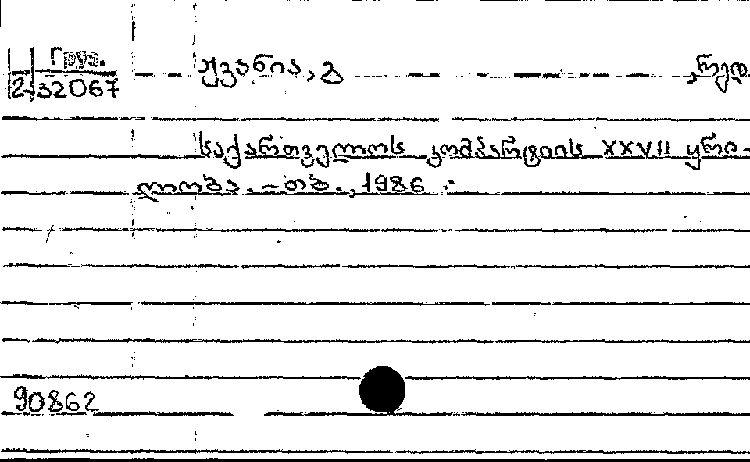 Груз.
2.32067
ჟვანია, გ ,რედ
საქართველოს კომპარტიის XXVII ყრი-
ლობა. – თბ., 1986.
90862